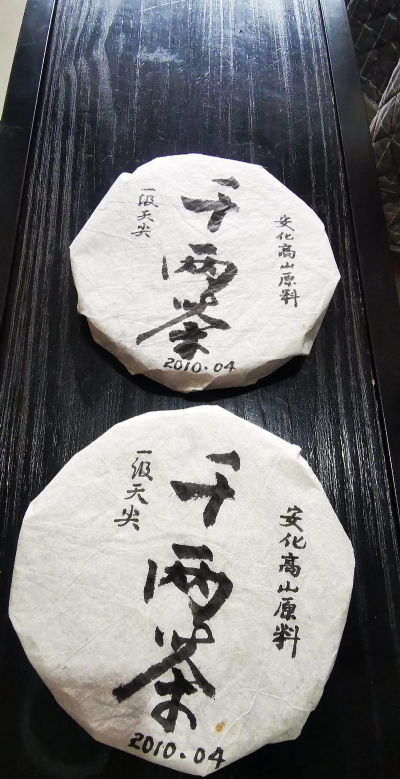 安化高山原料
千两茶
一级天尖
2010.04
安化高山原料
千两茶
一级天尖
2010.04